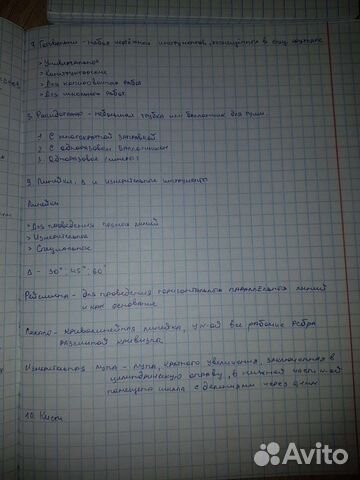 7. Готовальня - набор чертёжных инструментов, помещённых в спец. футляре
> Универсальная
> Конструкторская
> Для копировочных работ
> Для школьных работ
8. Рапидограф - небольшая трубка или баллончик для туши.
1 С многократной заправкой
2 С одноразовым баллончиком
3 Одноразовое (линер)
9. Линейки, Δ и измерительные инструменты
Линейки
> Для проведения прямых линий
> Измерительные
> Специальные
Δ - 30°; 45°; 60°
Рейсшина - для проведения горизонтальных параллельных линий
и как основание
Лекало - криволинейная линейка, у к-ой все рабочие рёбра
различной кривизны
Измерительная лупа - лупа, кратного увеличения, заключённая в
цилиндрическую оправу, в нижней части к-ой
помещена шкала с делениями через
10. Кисти
Avito